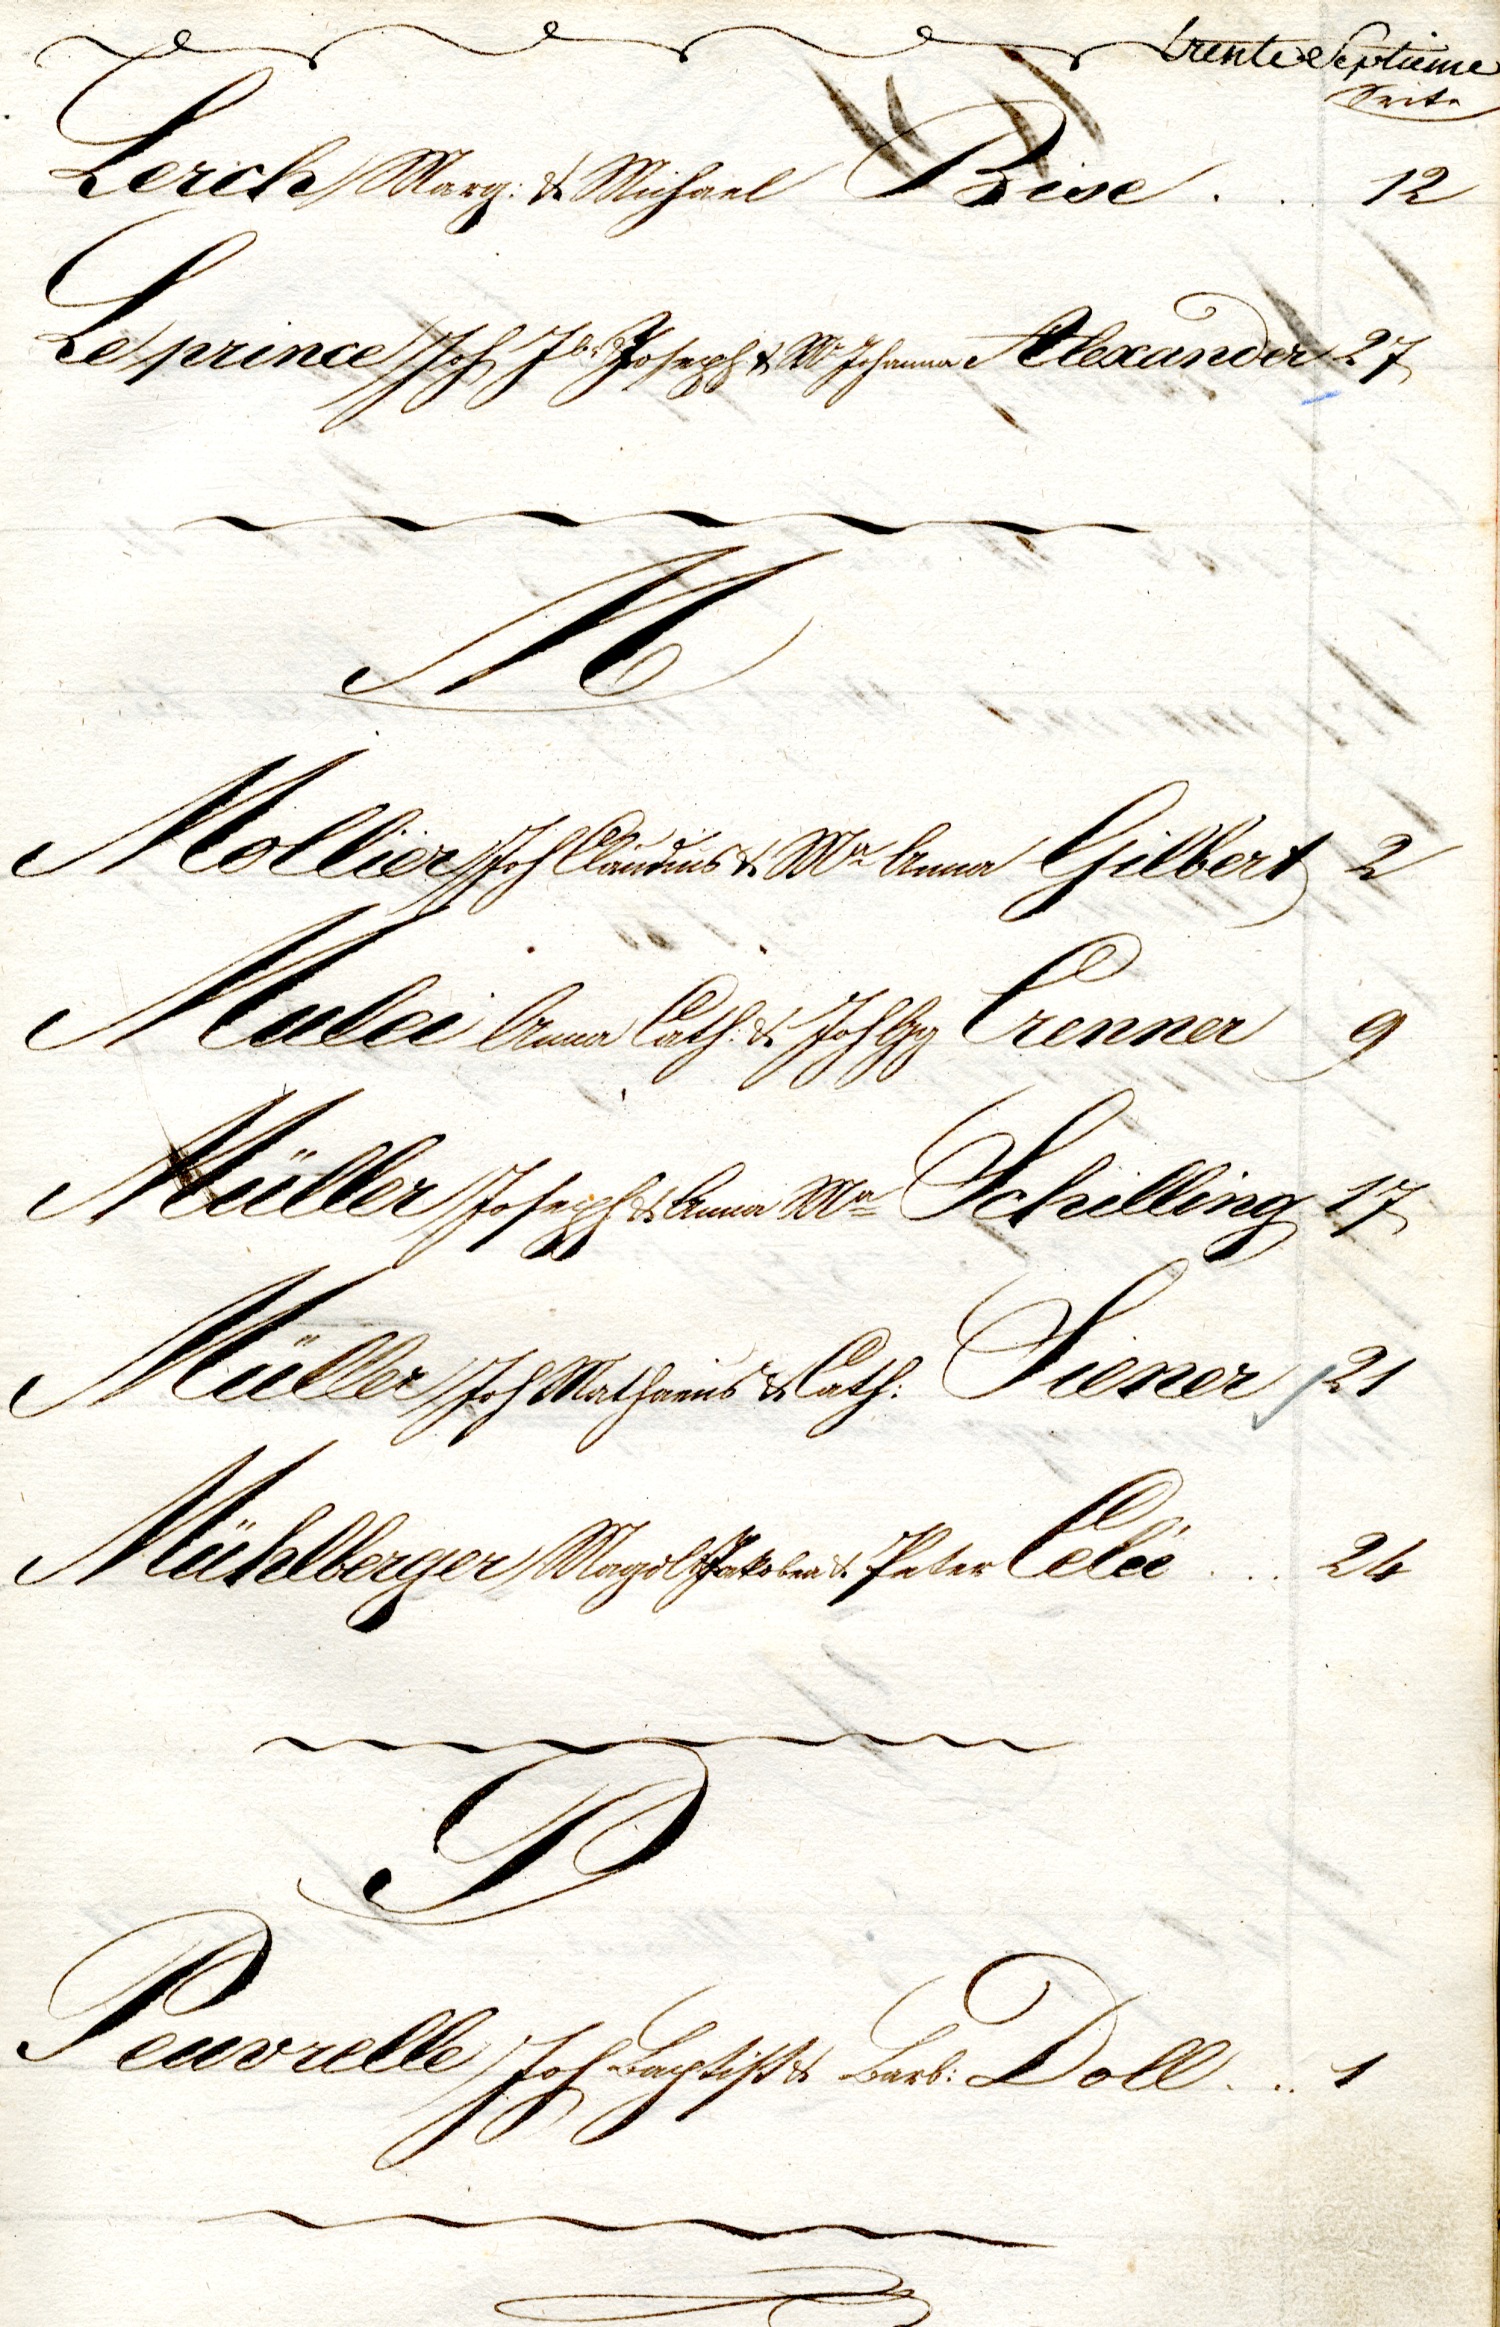 trente Septieme
Seite
Lerch Marg: & Michael Bise . . . 12
Leprince Joh Joseph & Mr Johanna Alexander 27
M
Mollier Joh Claudius & Ma Anna Gilbert 2
Mulei Anna Cath: & Joh Gg Crenner 9
Müller Joseph & Anna Ma Schilling 17
Müller Joh Mathaeus & Cath: Siener 21
Mühlberger Magdl Jakobea & Peter Celei . . . 24
P
Peuvrelle Joh Baptist & Barb: Doll . . . 1